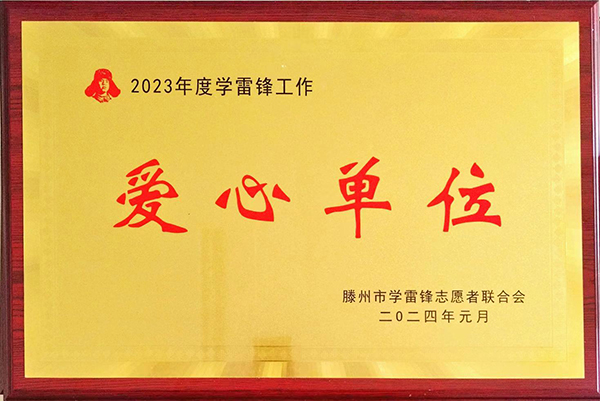 2023年度学雷锋工作
爱心单位
滕州市学雷锋志愿者联合会
二〇二四年元月